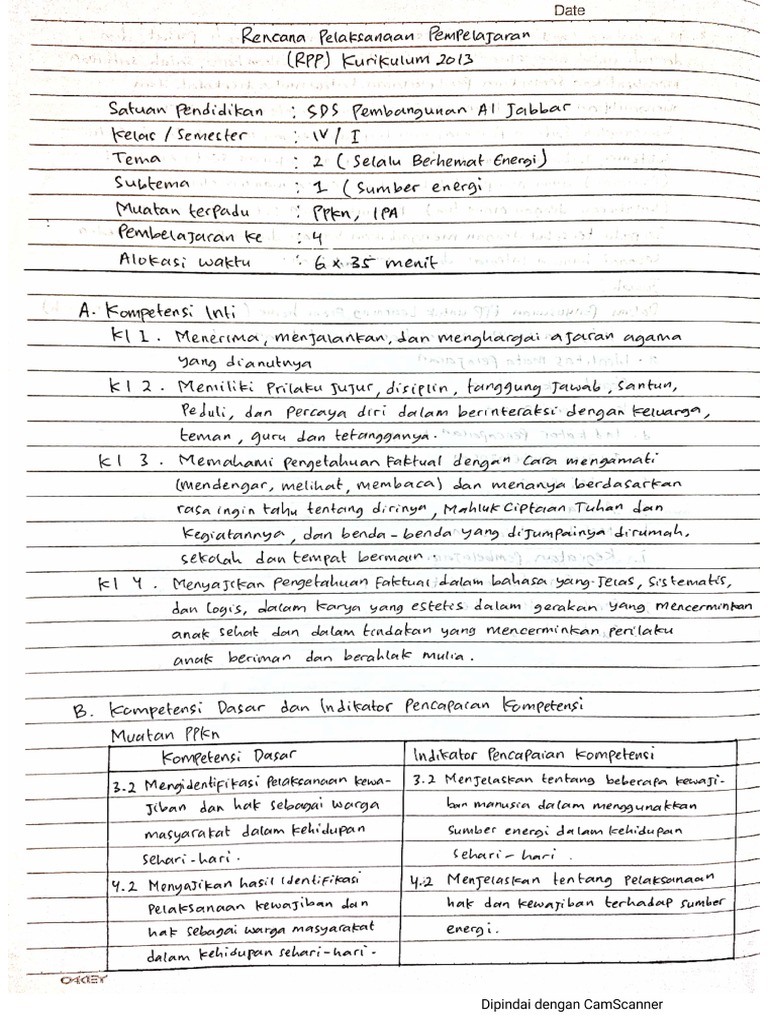 Date
Rencana Pelaksanaan Pempelajaran
(RPP) Kurikulum 2013
Satuan Pendidikan : SDS Pembangunan Al Jabbar
Kelas / Semester : IV / I
Tema : 2 ( Selalu Berhemat Energi)
Subtema : 1 ( Sumber energi
Muatan terpadu : PPKn, IPA
Pembelajaran ke : 4
Alokasi waktu : 6 x 35 menit
A. Kompetensi Inti
KI 1. Menerima, menjalankan, dan menghargai ajaran agama
yang dianutnya
KI 2. Memiliki Prilaku jujur, disiplin, tanggung jawab, santun,
Peduli, dan Percaya diri dalam berinteraksi dengan keluarga,
teman, guru dan tetangganya.
KI 3. Memahami pengetahuan Faktual dengan cara mengamati
(mendengar, melihat, membaca) dan menanya berdasarkan
rasa ingin tahu tentang dirinya, Mahluk Ciptaan Tuhan dan
Kegiatannya, dan benda-benda yang dijumpainya dirumah,
sekolah dan tempat bermain.
KI 4. Menyajikan pengetahuan Faktual dalam bahasa yang jelas, sistematis,
dan logis, dalam karya yang estetis dalam gerakan yang mencerminkan
anak sehat dan dalam tindakan yang mencerminkan perilaku
anak beriman dan berahlak mulia.
B. Kompetensi Dasar dan Indikator Pencapaian Kompetensi
Muatan PPKn
Kompetensi Dasar
3.2 Mengidentifikasi Pelaksanaan kewa-
jiban dan hak sebagai warga
masyarakat dalam kehidupan
sehari-hari.
4.2 Menyajikan hasil identifikasi
Pelaksanaan kewajiban dan
hak sebagai warga masyarakat
dalam kehidupan sehari-hari.
Indikator Pencapaian Kompetensi
3.2 Menjelaskan tentang beberapa kewaji-
ban manusia dalam menggunakkan
sumber energi dalam kehidupan
sehari-hari.
4.2 Menjelaskan tentang pelaksanaan
hak dan kewajiban terhadap sumber
energi.
OKEY
Dipindai dengan CamScanner